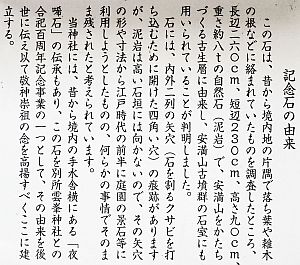 記念石の由来
この石は、昔から境内地の片隅で落ち葉や雑木
の根などに絡まれていたものを調査したところ、
長辺二六〇cm、短辺二二〇cm、高さ九〇cm、
重さ約八tの自然石（泥岩）で、安満山をかたち
づくる古生層に由来し、安満山古墳群の石室にも
用いられていることが判明しました。
石には、内外二列の矢穴（石を割るクサビを打
ち込むために開けた四角い穴）の痕跡があります
が、泥岩は高い石垣には向かないので、その矢穴
の形や寸法から江戸時代の前半に庭園の景石等に
利用しようとしたものの、何らかの事情でそのま
ま残されたと考えられています。
当神社には、昔から境内の手水舎横にある「夜
啼石」の伝承もあり、この石を別所雲峯神社との
合祀百周年記念事業の一つとして、その由来を後
世に伝え以て敬神崇祖の念を高揚すべくここに建
立する。